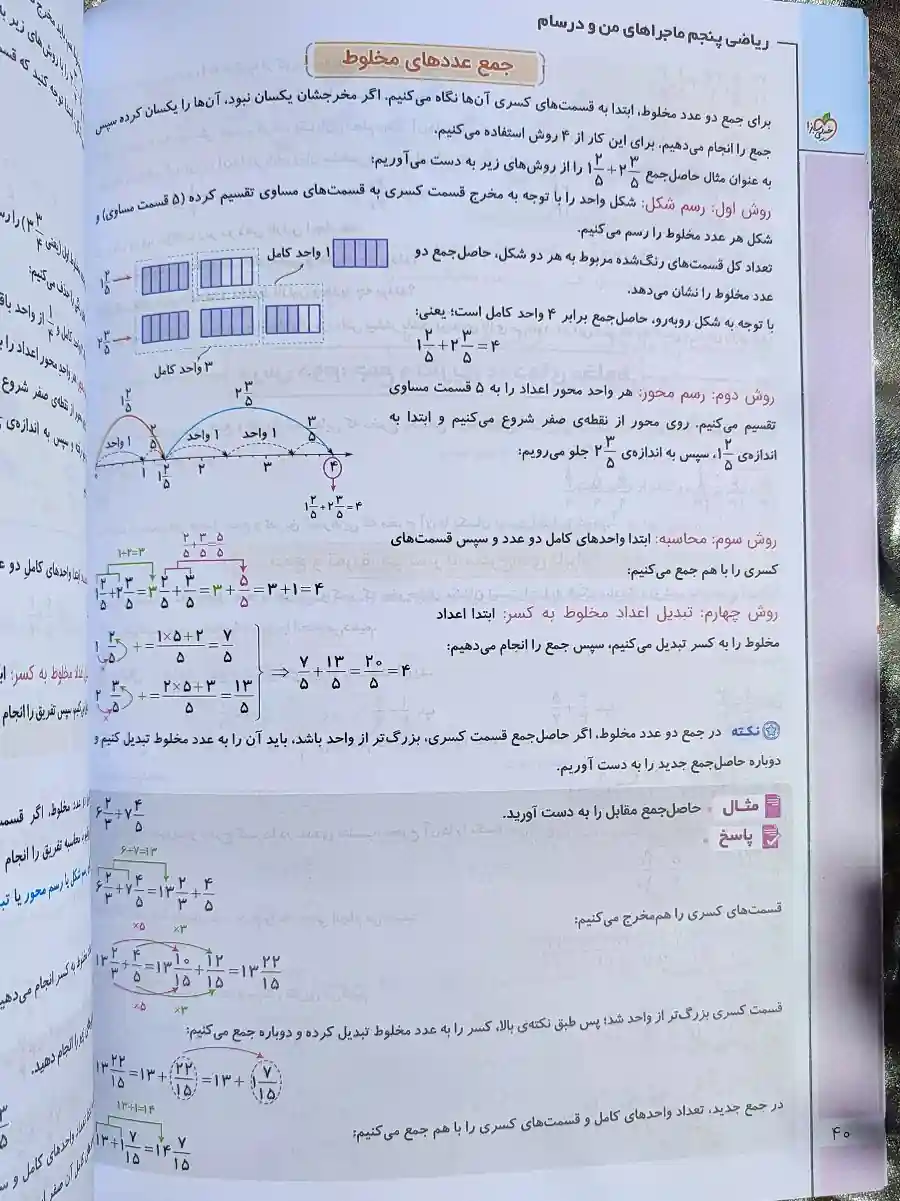 ریاضی پنجم ماجراهای من و درسام
خیلی سبز
جمع عددهای مخلوط
برای جمع دو عدد مخلوط، ابتدا به قسمت‌های کسری آن‌ها نگاه می‌کنیم. اگر مخرجشان یکسان نبود، آن‌ها را یکسان کرده سپس
جمع را انجام می‌دهیم. برای این کار از ۴ روش استفاده می‌کنیم.
به عنوان مثال حاصل‌جمع ۱ ۲/۵ + ۲ ۳/۵ را از روش‌های زیر به دست می‌آوریم:
روش اول: رسم شکل: شکل واحد را با توجه به مخرج قسمت کسری به قسمت‌های مساوی تقسیم کرده (۵ قسمت مساوی) و
شکل هر عدد مخلوط را رسم می‌کنیم.
تعداد کل قسمت‌های رنگ‌شده مربوط به هر دو شکل، حاصل‌جمع دو
عدد مخلوط را نشان می‌دهد.
با توجه به شکل روبه‌رو، حاصل‌جمع برابر ۴ واحد کامل است؛ یعنی:
۱ ۲/۵ + ۲ ۳/۵ = ۴
۱ واحد کامل
۱ ۲/۵
۲ ۳/۵
۳ واحد کامل
روش دوم: رسم محور: هر واحد محور اعداد را به ۵ قسمت مساوی
تقسیم می‌کنیم. روی محور از نقطه‌ی صفر شروع می‌کنیم و ابتدا به
اندازه‌ی ۱ ۲/۵، سپس به اندازه‌ی ۲ ۳/۵ جلو می‌رویم:
۱ ۲/۵ ۲ ۳/۵
۱ واحد ۲/۵ ۱ واحد ۱ واحد ۳/۵
۱ ۱ ۲/۵ ۲ ۳ ۴
۱ ۲/۵ + ۲ ۳/۵ = ۴
روش سوم: محاسبه: ابتدا واحدهای کامل دو عدد و سپس قسمت‌های
کسری را با هم جمع می‌کنیم:
۱+۲=۳ ۲/۵ + ۳/۵ = ۵/۵
۱ ۲/۵ + ۲ ۳/۵ = ۳ ۲/۵ + ۳/۵ = ۳ + ۵/۵ = ۳+۱=۴
روش چهارم: تبدیل اعداد مخلوط به کسر: ابتدا اعداد
مخلوط را به کسر تبدیل می‌کنیم، سپس جمع را انجام می‌دهیم:
۱ ۲/۵ + = (۱×۵+۲)/۵ = ۷/۵
×
۲ ۳/۵ + = (۲×۵+۳)/۵ = ۱۳/۵
×
⇒ ۷/۵ + ۱۳/۵ = ۲۰/۵ = ۴
نکته در جمع دو عدد مخلوط، اگر حاصل‌جمع قسمت کسری، بزرگ‌تر از واحد باشد، باید آن را به عدد مخلوط تبدیل کنیم و
دوباره حاصل‌جمع جدید را به دست آوریم.
مثال حاصل‌جمع مقابل را به دست آورید.
۶ ۲/۳ + ۷ ۴/۵
پاسخ
۶+۷=۱۳
۶ ۲/۳ + ۷ ۴/۵ = ۱۳ ۲/۳ + ۴/۵
قسمت‌های کسری را هم‌مخرج می‌کنیم:
×۵ ×۳
۱۳ ۲/۳ + ۴/۵ = ۱۳ ۱۰/۱۵ + ۱۲/۱۵ = ۱۳ ۲۲/۱۵
×۵ ×۳
قسمت کسری بزرگ‌تر از واحد شد؛ پس طبق نکته‌ی بالا، کسر را به عدد مخلوط تبدیل کرده و دوباره جمع می‌کنیم:
۱۳ ۲۲/۱۵ = ۱۳ + ۲۲/۱۵ = ۱۳ + ۱ ۷/۱۵
در جمع جدید، تعداد واحدهای کامل و قسمت‌های کسری را با هم جمع می‌کنیم:
۱۳+۱=۱۴
۱۳ + ۱ ۷/۱۵ = ۱۴ ۷/۱۵
۴۰